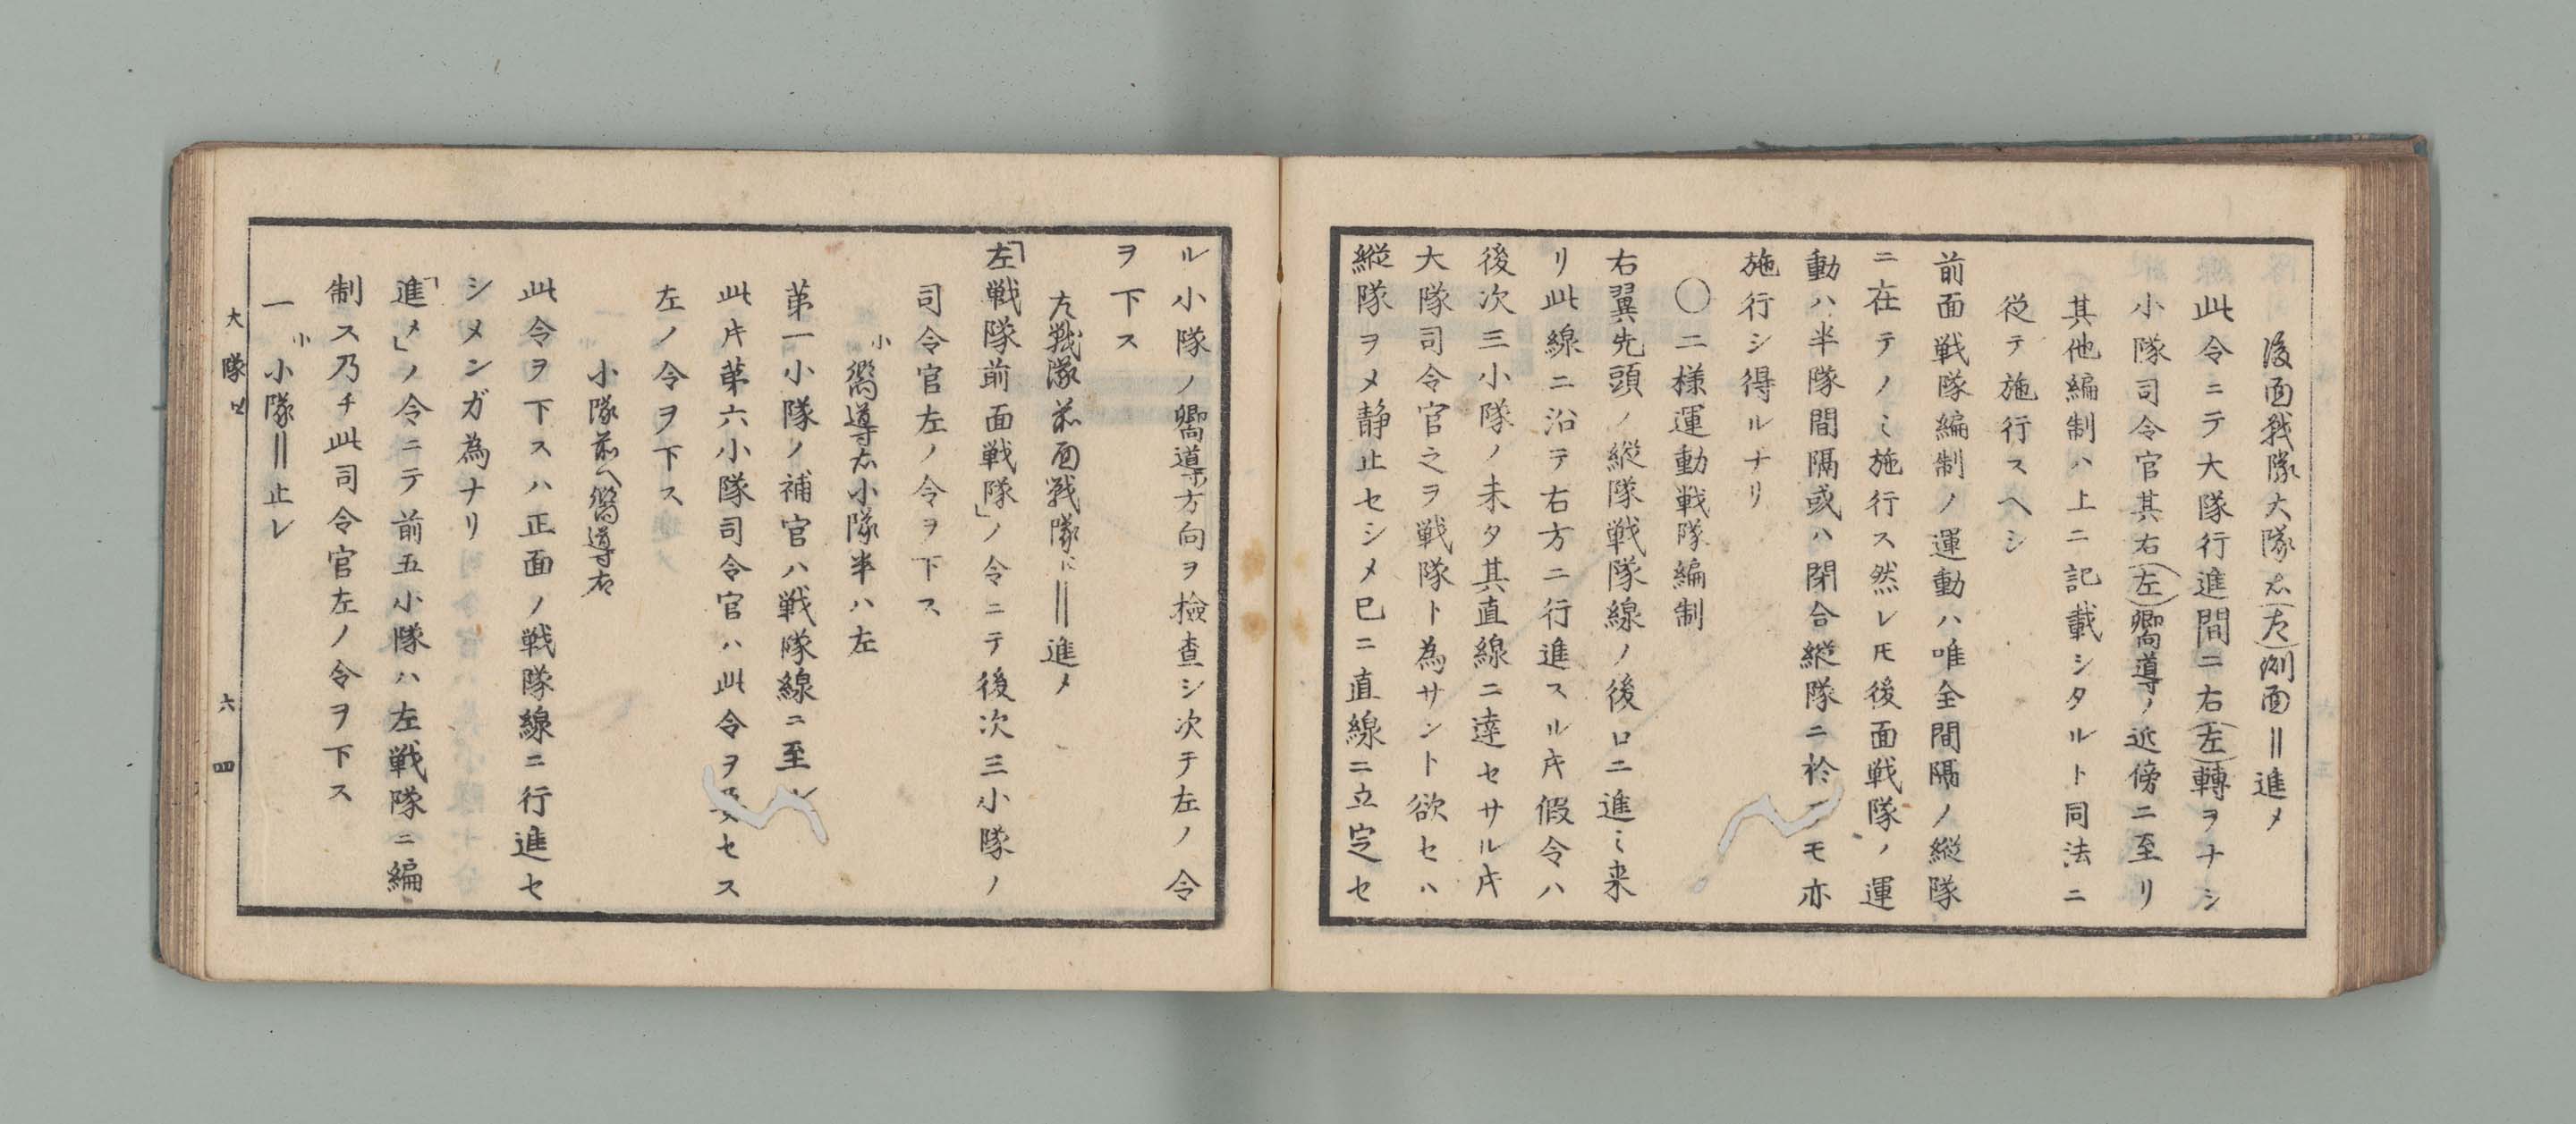 後面戦隊大隊右(左)側面‖進メ
此令ニテ大隊行進間ニ右(左)轉ヲナシ
小隊司令官其右(左)嚮導ノ近傍ニ至リ
其他編制ハ上ニ記載シタルト同法ニ
従テ施行スヘシ
前面戦隊編制ノ運動ハ唯全間隔ノ縦隊
ニ在テノミ施行ス然レ𪜈後面戦隊ノ運
動ハ半隊間隔或ハ閉合縦隊ニ於テモ亦
施行シ得ルナリ
〇二様運動戦隊編制
右翼先頭ノ縦隊戦隊線ノ後ロニ進ミ来
リ此線ニ沿テ右方ニ行進スル𪜀假令ハ
後次三小隊ノ未タ其直線ニ達セサル𪜀
大隊司令官之ヲ戦隊ト為サント欲セハ
縦隊ヲメ静止セシメ已ニ直線ニ立定セ
ル小隊ノ嚮導方向ヲ檢査シ次テ左ノ令
ヲ下ス
左戦隊前面戦隊ニ‖進メ
「左戦隊前面戦隊」ノ令ニテ後次三小隊ノ
司令官左ノ令ヲ下ス
小嚮導右小隊半ハ左
苐一小隊ノ補官ハ戦隊線ニ至ル
此𪜀苐六小隊司令官ハ此令ヲ セス
左ノ令ヲ下ス
小隊前へ嚮導右
此令ヲ下スハ正面ノ戦隊線ニ行進セ
シメンガ為ナリ
「進メ」ノ令ニテ前五小隊ハ左戦隊ニ編
制ス乃チ此司令官左ノ令ヲ下ス
一小小隊‖止レ
大隊 六 四